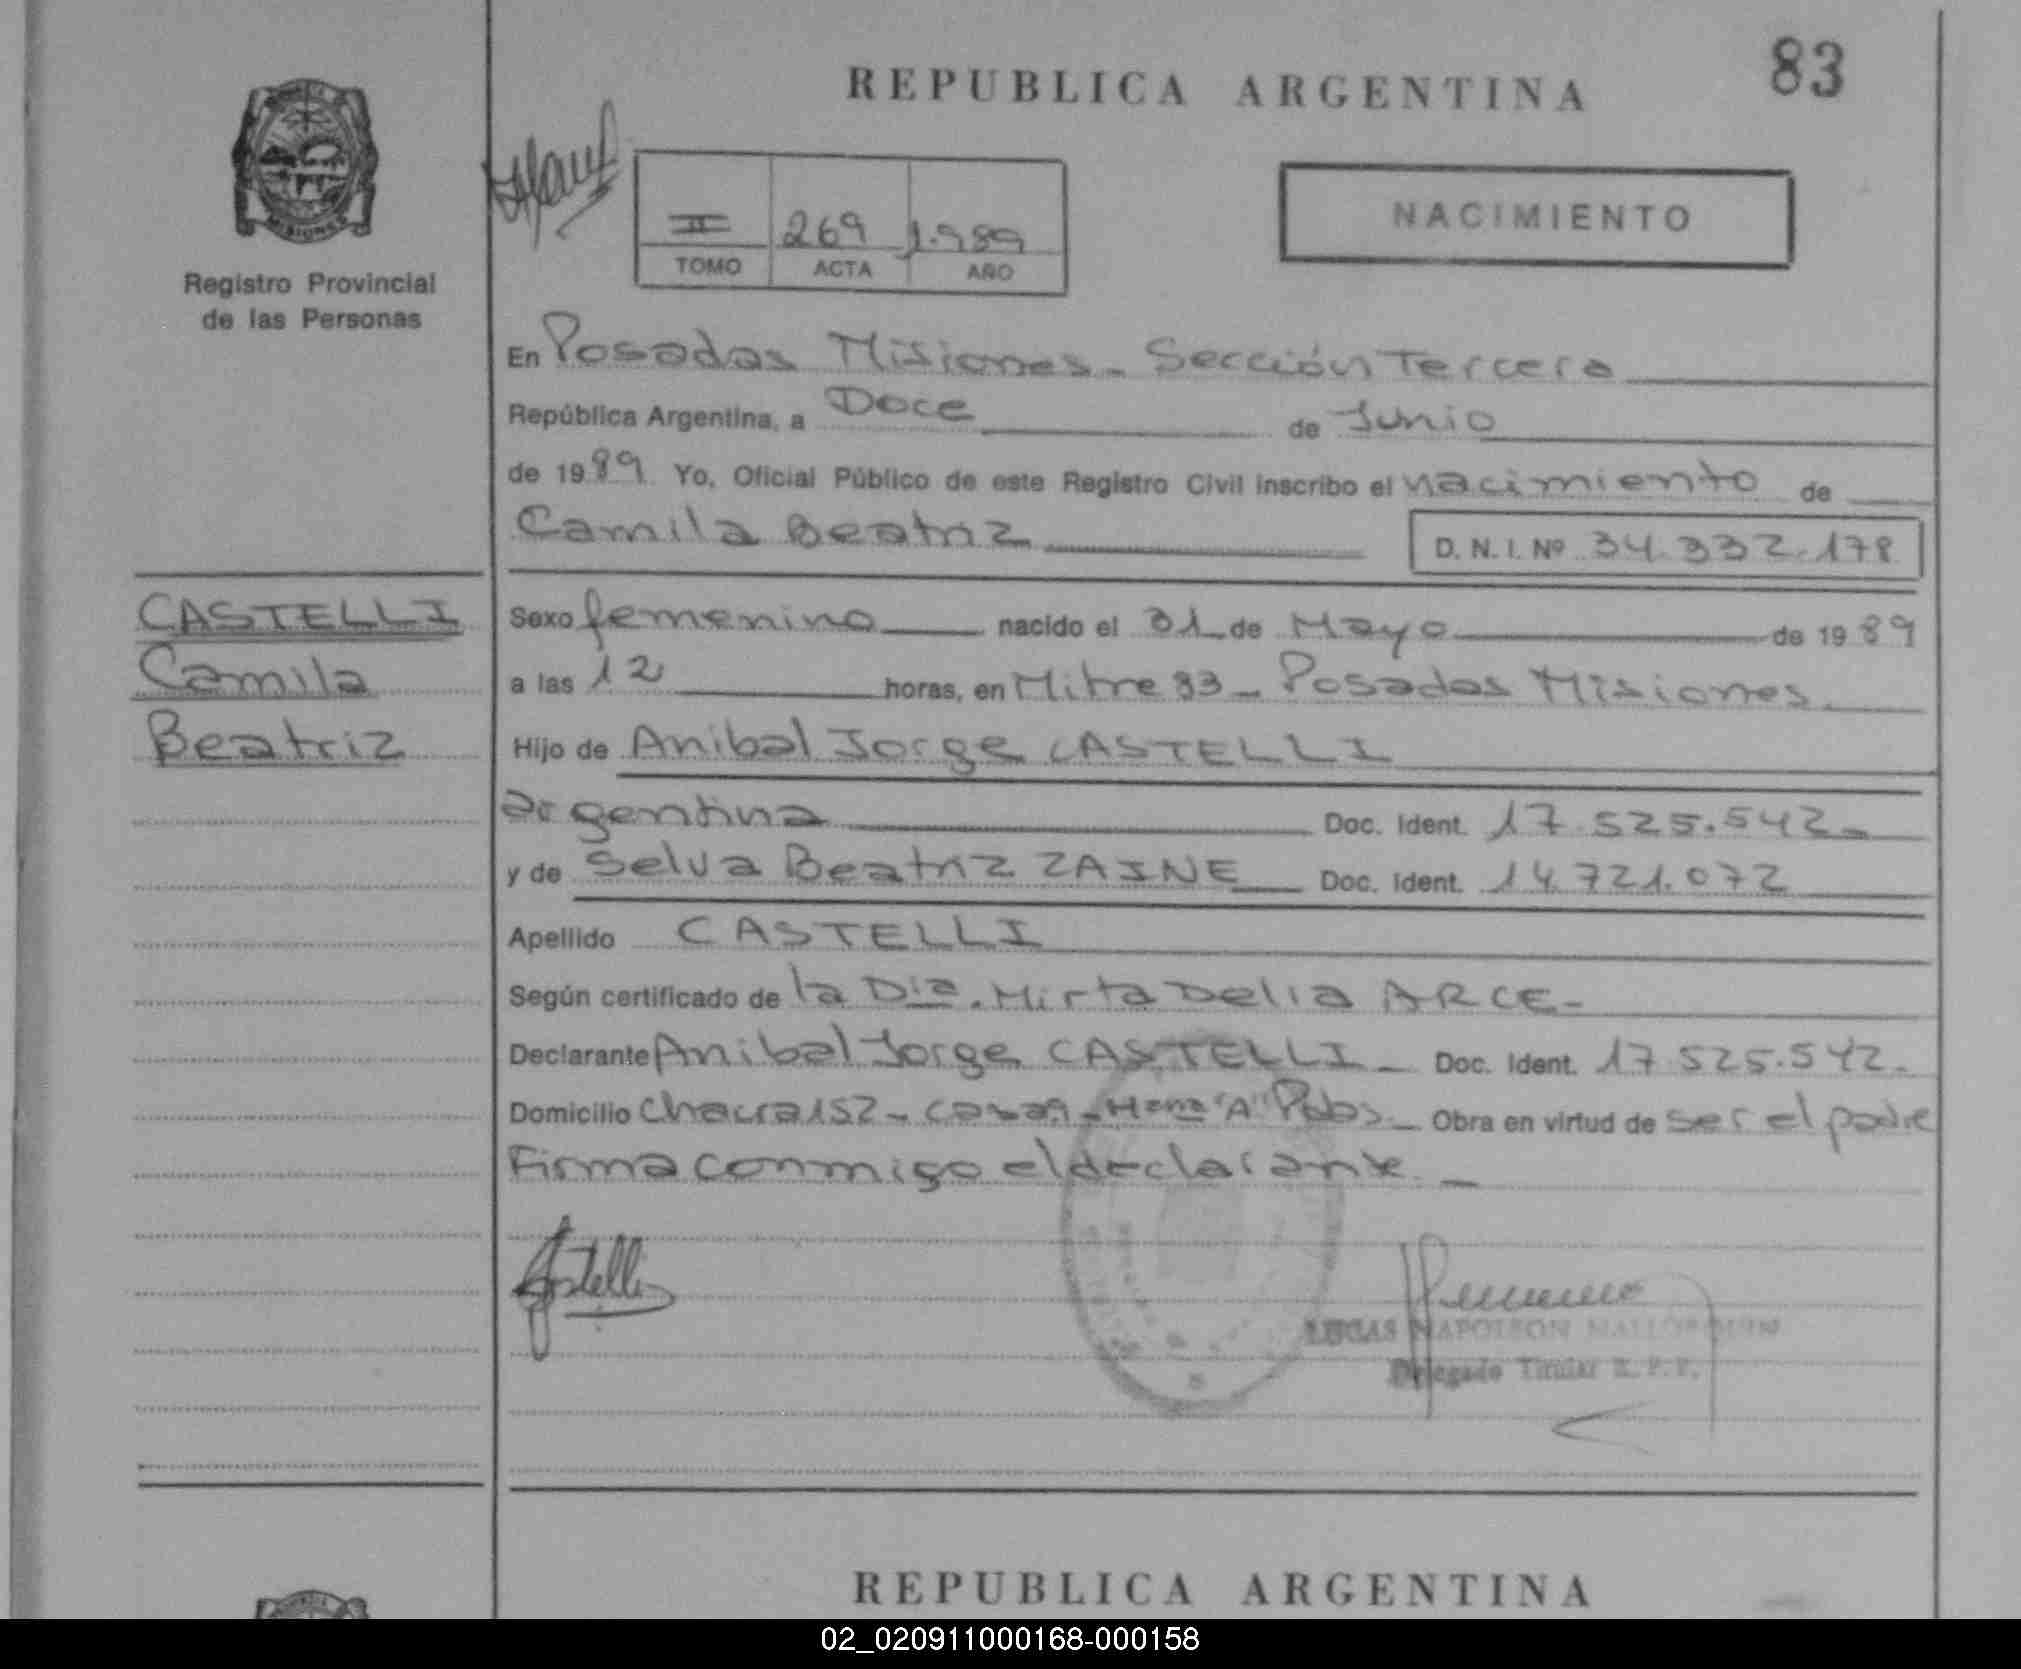 REPUBLICA ARGENTINA
83
MISIONES
Registro Provincial
de las Personas
II 269 1.989
TOMO ACTA AÑO
NACIMIENTO
En Posadas Misiones - Sección Tercera
República Argentina, a Doce de Junio
de 1989 Yo, Oficial Público de este Registro Civil inscribo el nacimiento de
Camila Beatriz D. N. I. Nº 34.332.178
CASTELLI
Camila
Beatriz
Sexo femenino nacido el 31 de Mayo de 1989
a las 12 horas, en Mitre 33 - Posadas Misiones
Hijo de Anibal Jorge CASTELLI
argentina Doc. Ident. 17.525.542-
y de Selva Beatriz ZAINE Doc. Ident. 14.721.072
Apellido CASTELLI
Según certificado de la Dra. Mirta Delia ARCE-
Declarante Anibal Jorge CASTELLI - Doc. Ident. 17.525.542-
Domicilio Chacra 152 - casa 9 - Mzna "A" Pdas - Obra en virtud de ser el padre
Firma conmigo el declarante. -
Castelli
LUCAS NAPOLEON
Delegado Titular R. P. P.
REPUBLICA ARGENTINA
02_020911000168-000158